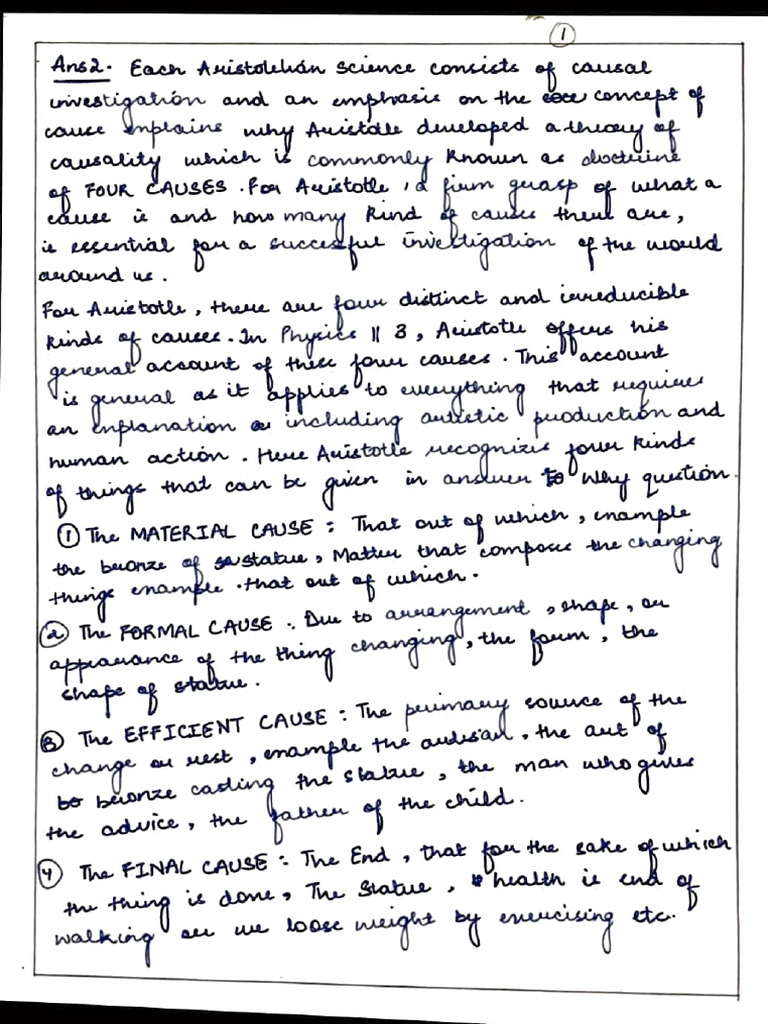 1
Ans2. Each Aristotelian science consists of causal
investigation and an emphasis on the concept of
cause explains why Aristotle developed a theory of
causality which is commonly known as doctrine
of FOUR CAUSES. For Aristotle, a firm grasp of what a
cause is and how many kind of causes there are,
is essential for a successful investigation of the world
around us.
For Aristotle, there are four distinct and irreducible
kinds of causes. In Physics II 3, Aristotle offers his
general account of these four causes. This account
is general as it applies to everything that requires
an explanation including artistic production and
human action. Here Aristotle recognizes four kinds
of things that can be given in answer to why question.
① The MATERIAL CAUSE : That out of which, example
the bronze of statue, Matter that compose the changing
things example. that out of which.
② The FORMAL CAUSE : Due to arrangement, shape, or
appearance of the thing changing, the form, the
shape of statue.
③ The EFFICIENT CAUSE : The primary source of the
change or rest, example the artisan, the art of
bronze casting the statue, the man who gives
the advice, the father of the child.
④ The FINAL CAUSE : The End, that for the sake of which
the thing is done, The statue, health is end of
walking or we loose weight by exercising etc.